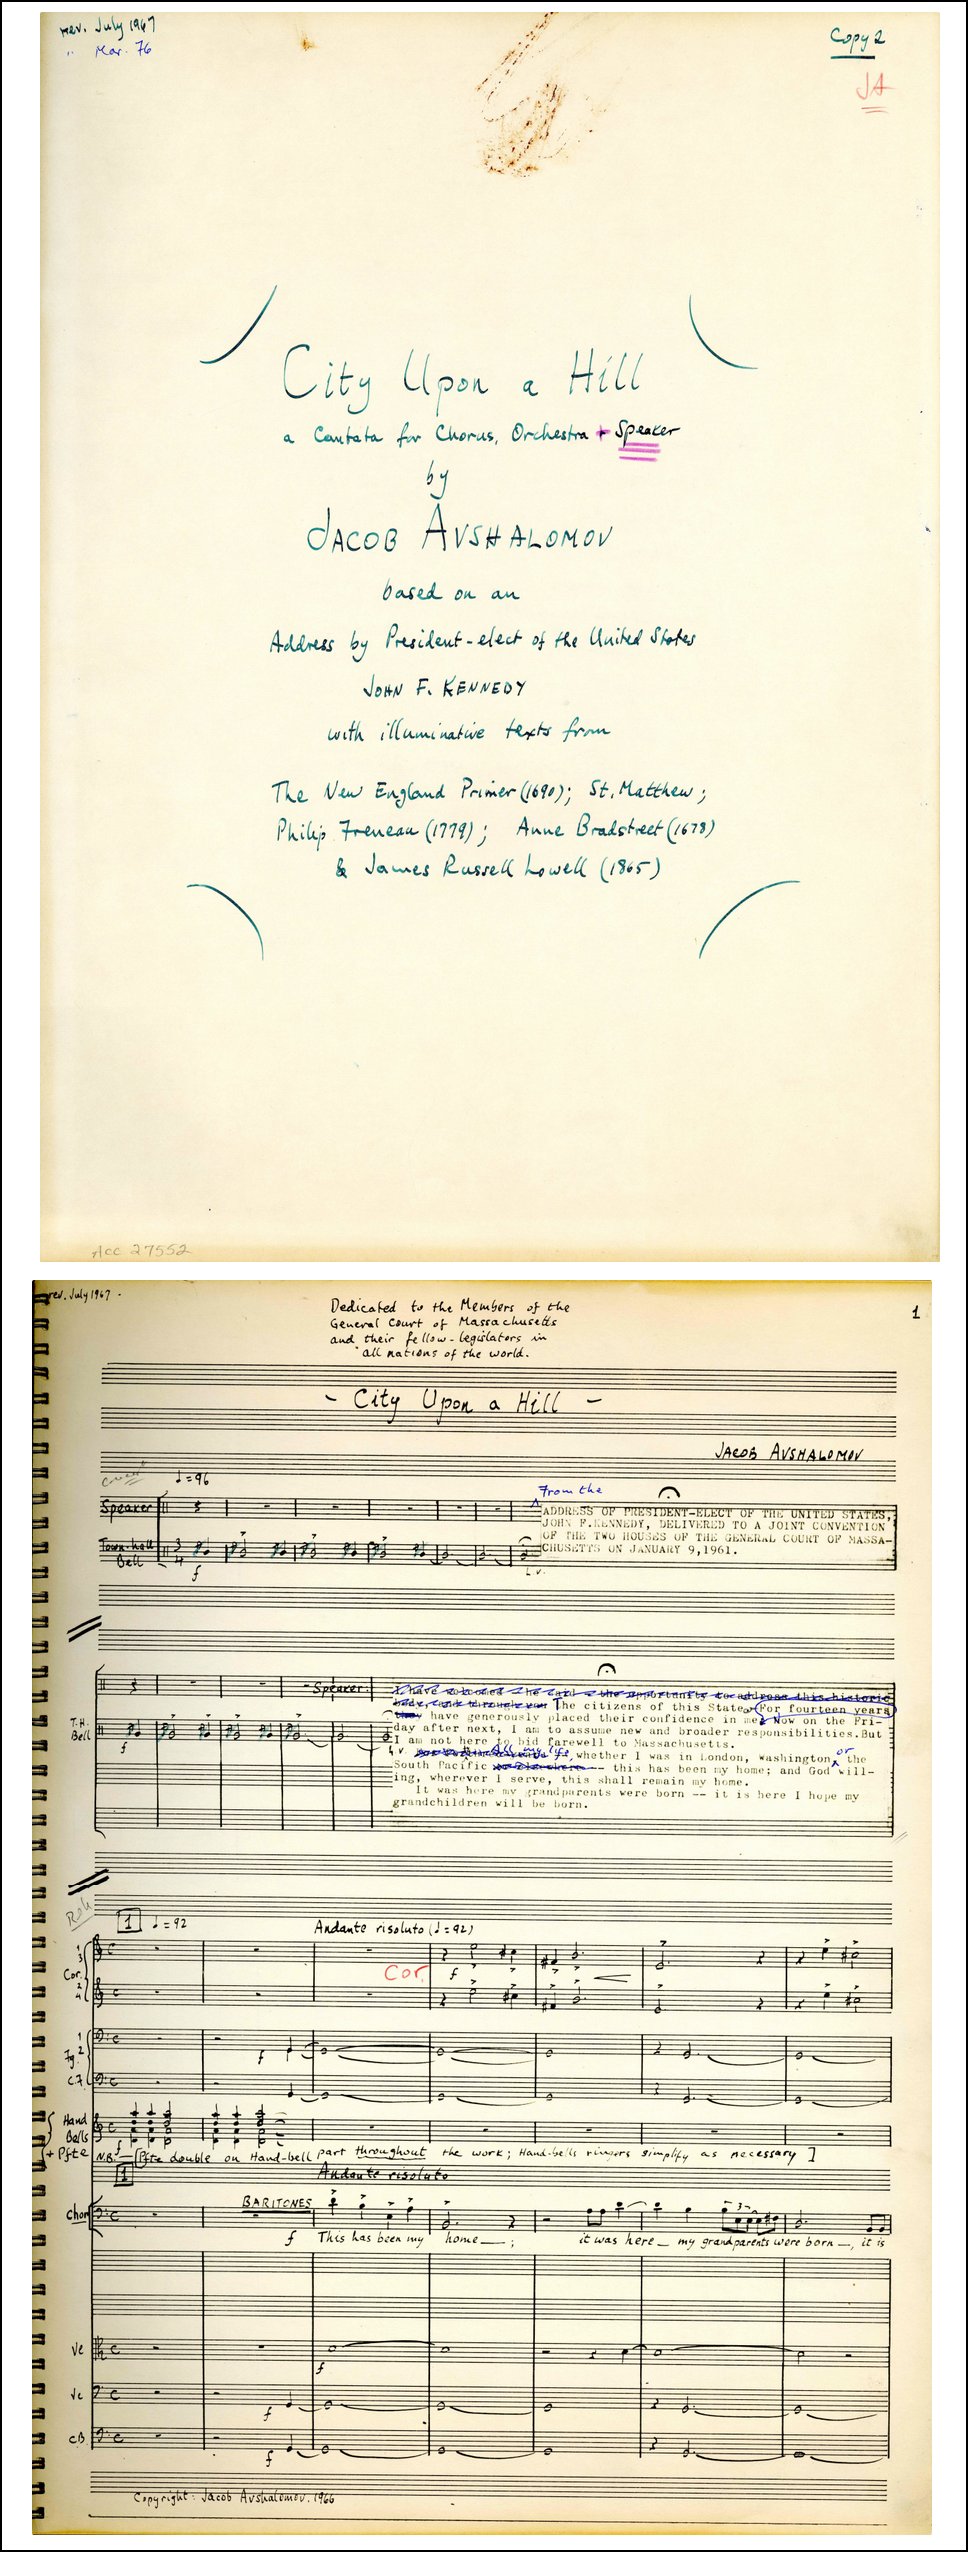 rev. July 1967
" Mar. 76
Copy 2
JA
City Upon a Hill
a Cantata for Chorus, Orchestra + Speaker
by
JACOB AVSHALOMOV
based on an
Address by President-elect of the United States
JOHN F. KENNEDY
with illuminative texts from
The New England Primer (1690); St. Matthew;
Philip Freneau (1779); Anne Bradstreet (1678)
& James Russell Lowell (1865)
Acc 27552
rev. July 1967 -
1
Dedicated to the Members of the
General Court of Massachusetts
and their fellow-legislators in
all nations of the world.
- City Upon a Hill -
JACOB AVSHALOMOV
♩=96
From the
Speaker
ADDRESS OF PRESIDENT-ELECT OF THE UNITED STATES,
JOHN F.KENNEDY, DELIVERED TO A JOINT CONVENTION
OF THE TWO HOUSES OF THE GENERAL COURT OF MASSA-
CHUSETTS ON JANUARY 9,1961.
Town-hall
Bell
3
4
f
l.v.
Speaker:
I have welcomed the opportunity to address this historic
body, and through you The citizens of this State. For fourteen years
they have generously placed their confidence in me. Now on the Fri-
day after next, I am to assume new and broader responsibilities. But
I am not here to bid farewell to Massachusetts.
All my life, whether I was in London, Washington, or the
South Pacific -- this has been my home; and God will-
ing, wherever I serve, this shall remain my home.
It was here my grandparents were born -- it is here I hope my
grandchildren will be born.
T.H.
Bell
f
l.v.
1 ♩=92
Andante risoluto (♩=92)
Cor.
1
3
2
4
Cor.
f
Fg.
1
2
f
C.F.
Hand
Bells
+ Pfte
f
N.B. [Pfte double on Hand-bell part throughout the work; Hand-bells ringers simplify as necessary]
1
Andante risoluto
Chor
BARITONES
3
f This has been my home —; it was here — my grandparents were born —, it is
Vle
f
Vc
f
CB
f
Copyright: Jacob Avshalomov. 1966